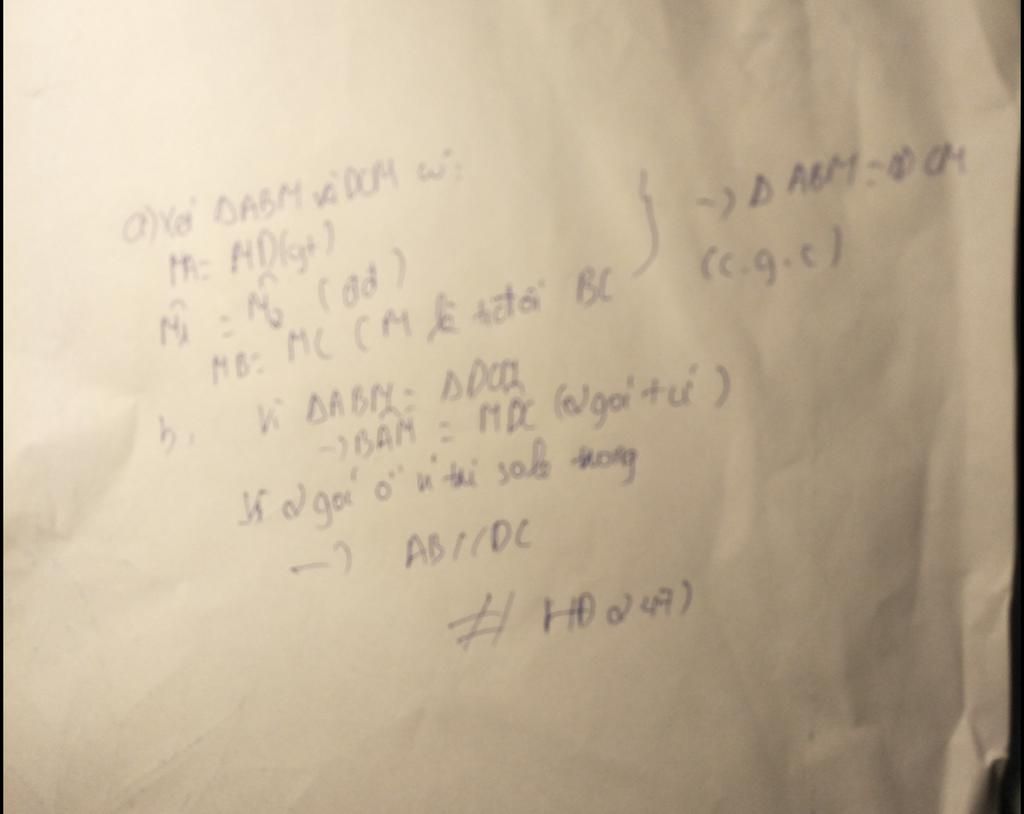 a) Xét ΔABM và DCM có:
MA = MD (gt)
M̂₁ = M̂₂ (đđ)
MB = MC (M là tđ BC
} → Δ ABM = Δ DCM
(c.g.c)
b, Vì ΔABM = ΔDCM
→ BÂM = MDC (2 góc t ư)
Vì 2 góc ở vị trí sole trong
→ AB // DC
# HĐ247)